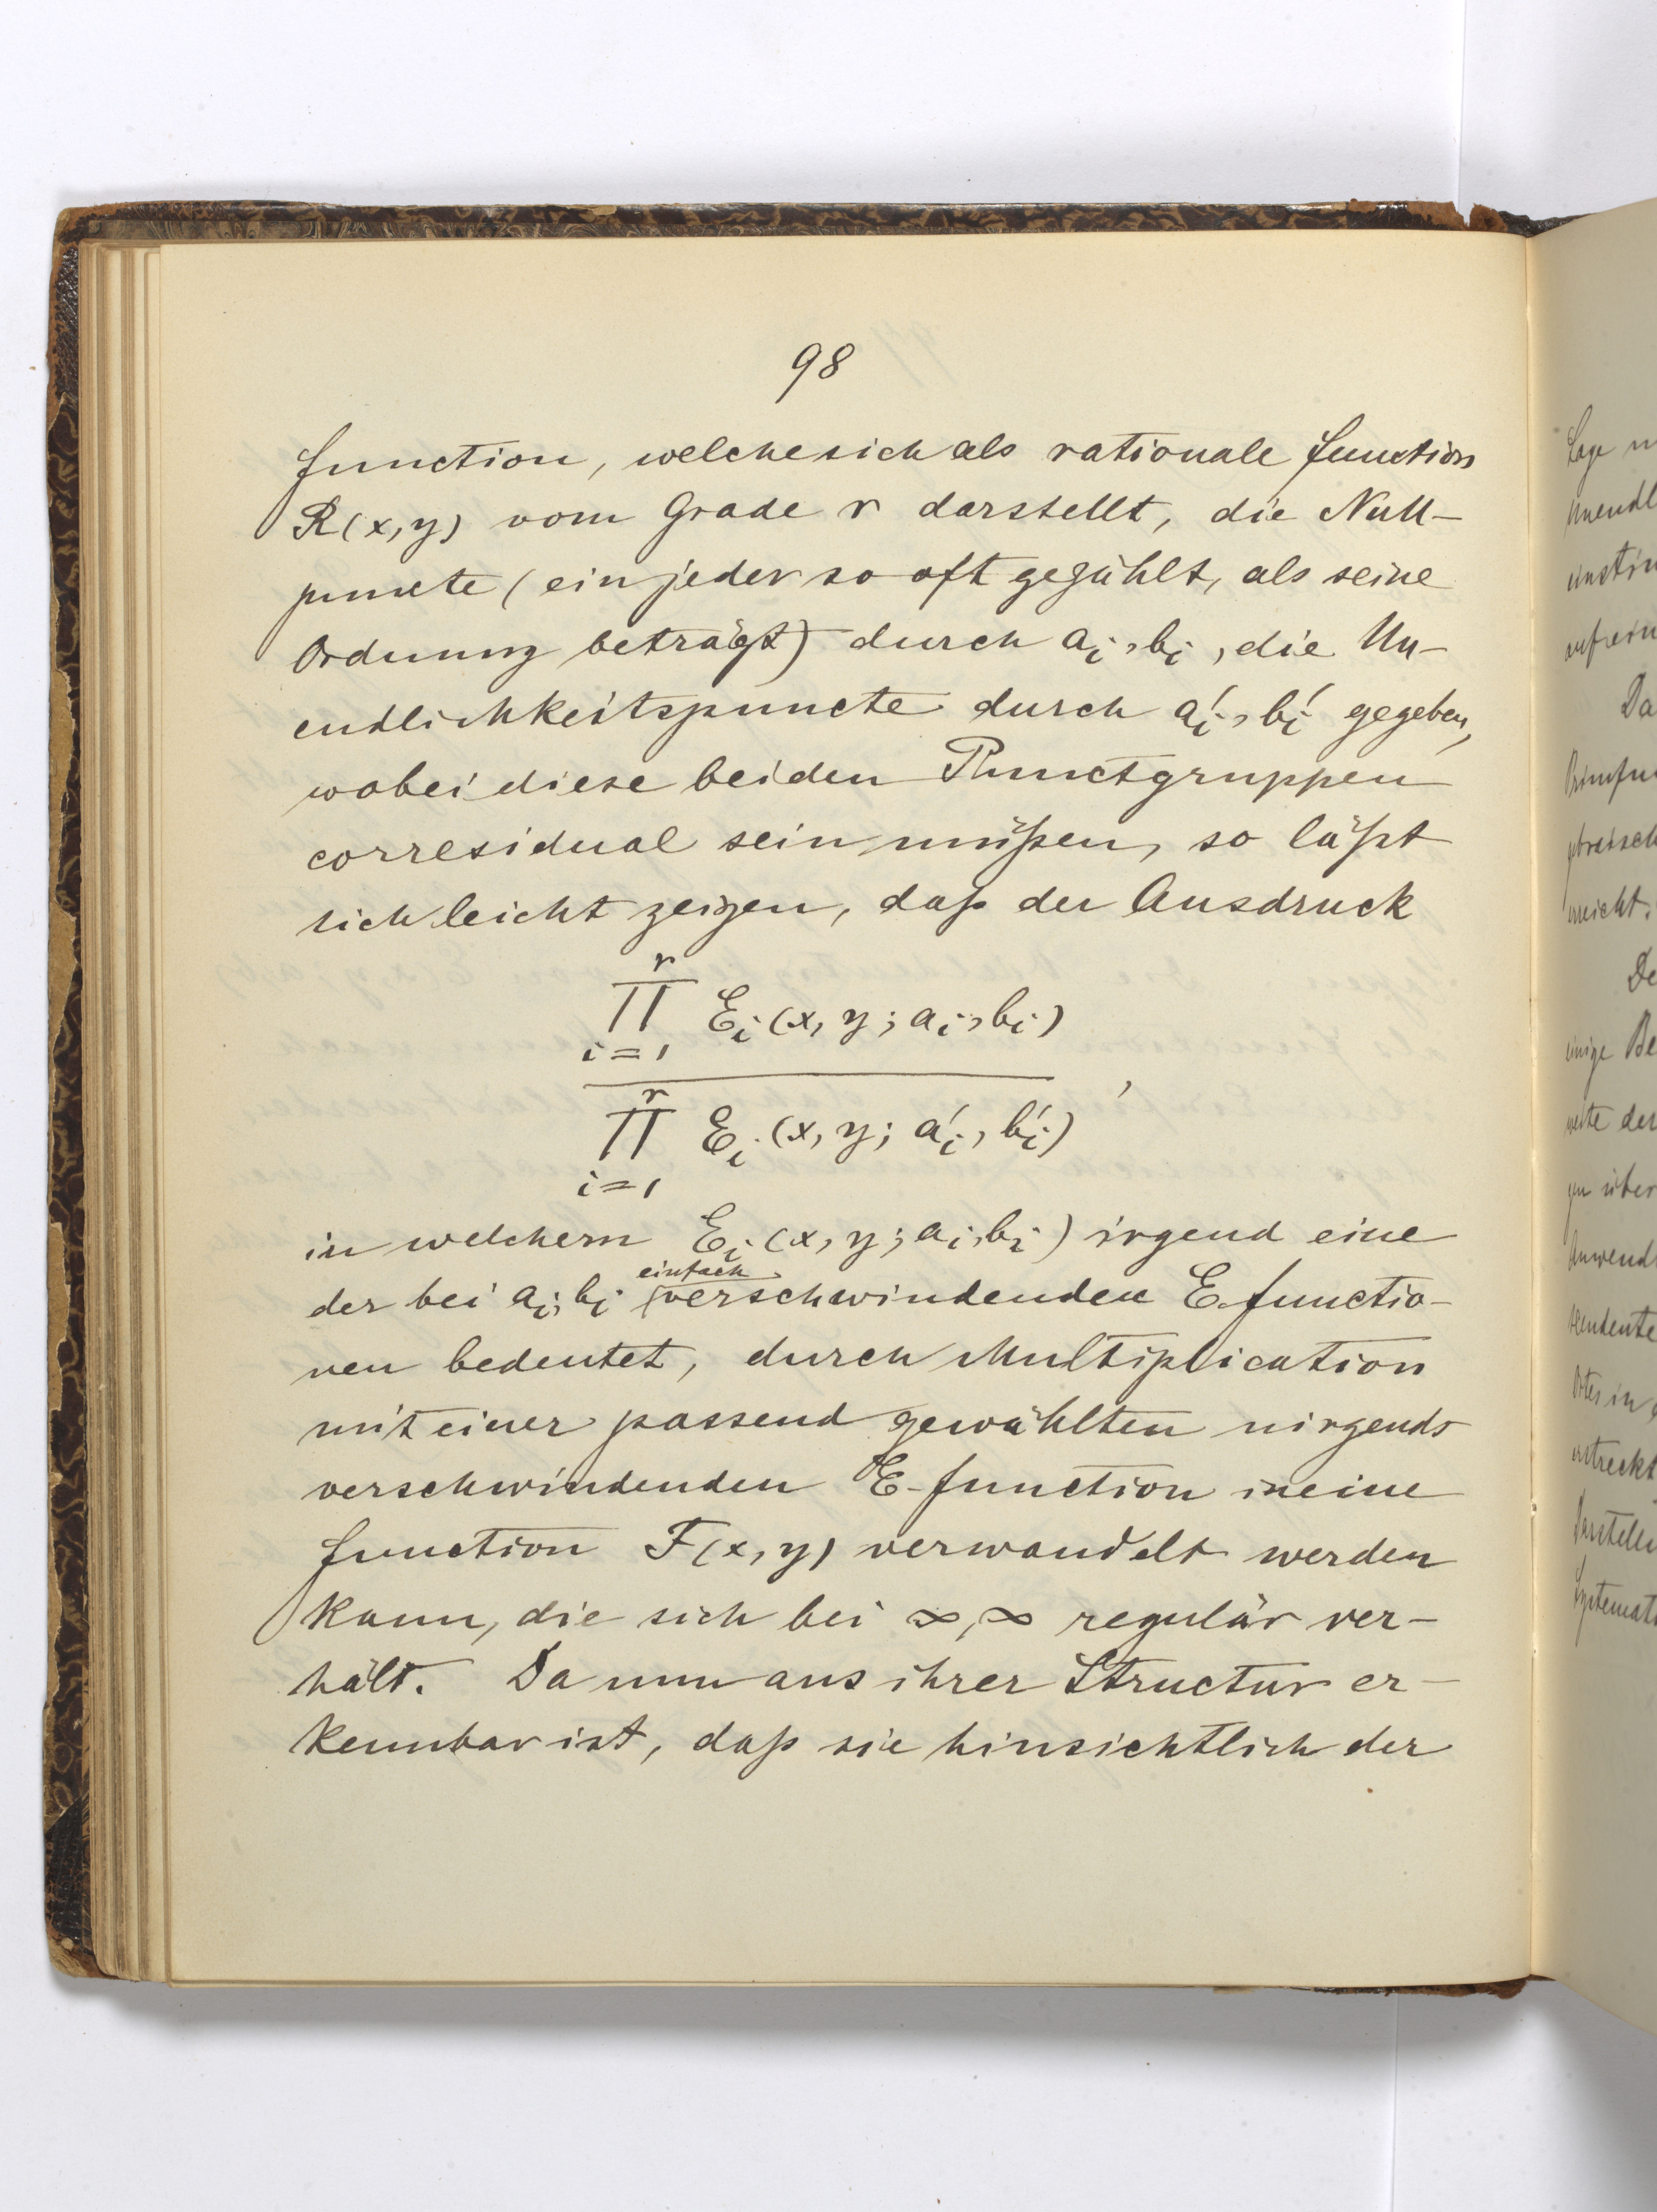 98
function, welche sich als rationale function
R(x,y) vom Grade r darstellt, die Null-
puncte (ein jeder so oft gezählt, als seine
Ordnung beträgt) durch aᵢ, bᵢ, die Un-
endlichkeitspuncte durch a'ᵢ, b'ᵢ gegeben,
wobei diese beiden Punctgruppen
corresidual sein müßen, so läßt
sich leicht zeigen, daß der Ausdruck
r
∏ Eᵢ(x, y; aᵢ, bᵢ)
i=1
r
∏ Eᵢ(x, y; a'ᵢ, b'ᵢ) ,
i=1
in welchem Eᵢ(x, y; aᵢ, bᵢ) irgend eine
einfach
der bei aᵢ, bᵢ verschwindenden E functio-
nen bedeutet, durch Multiplication
mit einer passend gewählten nirgends
verschwindenden E-function in eine
function F(x, y) verwandelt werden
kann, die sich bei ∞, ∞ regulär ver-
hält. Da nun aus ihrer Structur er-
kennbar ist, daß sie hinsichtlich der
Lage
Da
De
einige Be